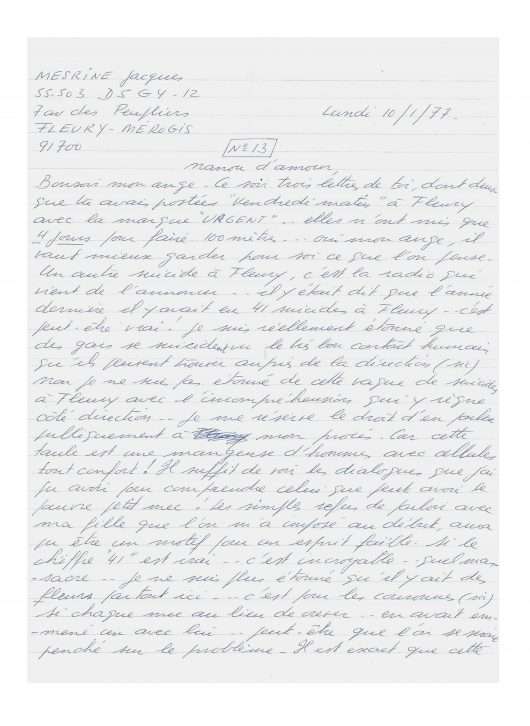 MESRINE Jacques
55.503 D5 GY-12
7 av des Peupliers
Lundi 10/1/77.
FLEURY-MEROGIS
91700
N° 13
nanou d'amour,
Bonsoir mon ange. Ce soir trois lettres de toi, dont deux
que tu avais postées "vendredi matin" à Fleury
avec la marque "URGENT".. elles n'ont mis que
4 jours pour faire 100 mètres... oui mon ange, il
vaut mieux garder pour soi ce que l'on pense.
Un autre suicide à Fleury, c'est la radio qui
vient de l'annoncer... il y était dit que l'année
dernière il y avait eu 41 suicides à Fleury - c'est
peut-être vrai. je suis réellement étonné que
des gars se suicident vu le très bon contact humain
qu'ils peuvent trouver auprès de la direction (sic)
non je ne suis pas étonné de cette vague de suicides
à Fleury avec l'incompréhension qui y règne
côté direction.. je me réserve le droit d'en parler
publiquement à mon procès. Car cette
taule est une mangeuse d'hommes avec cellules
tout confort! Il suffit de voir les dialogues que j'ai
pu avoir pour comprendre celui que peut avoir le
pauvre petit mec! les simples refus de parloir avec
ma fille que l'on m'a imposé au début, aura
pu être un motif pour un esprit faible. Si le
chiffre "41" est vrai... c'est incroyable - quel mas-
-sacre.. je ne suis plus étonné qu'il y ait des
fleurs partout ici... c'est pour les couronnes (sic)
si chaque mec au lieu de crever.. en avait em-
-mené un avec lui.. peut-être que l'on se serait
penché sur le problème - Il est exact que cette